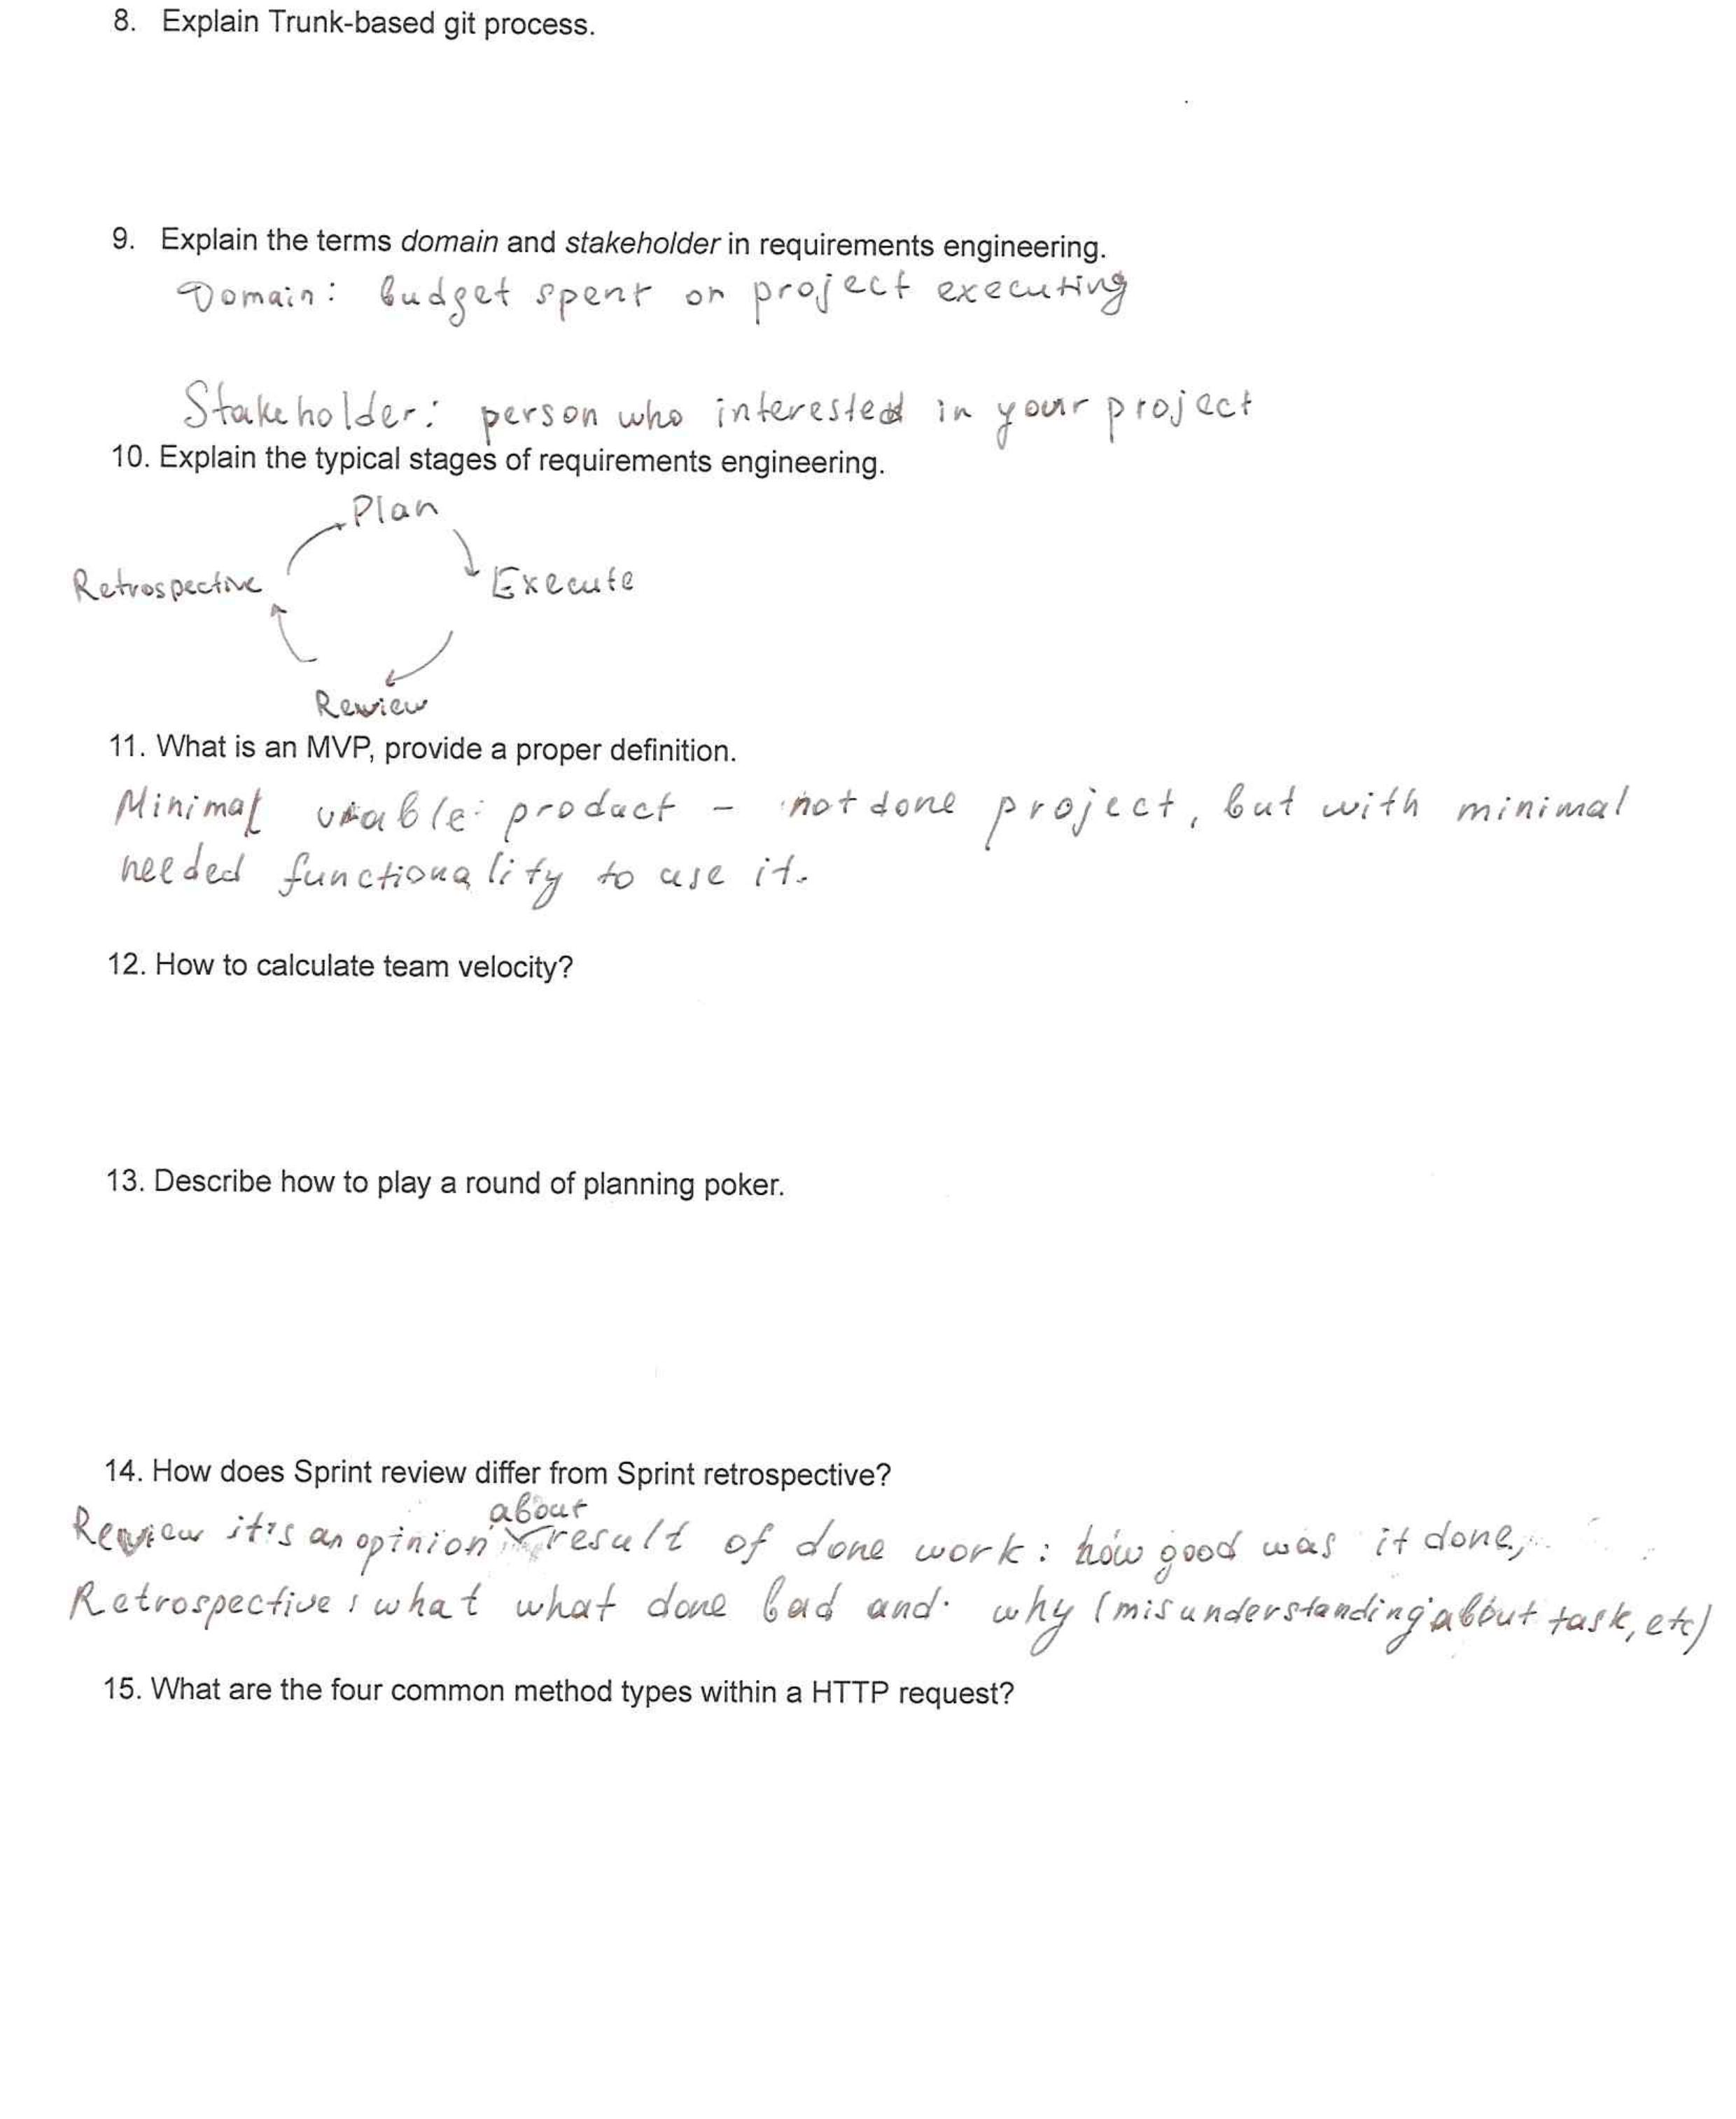 8. Explain Trunk-based git process.
9. Explain the terms domain and stakeholder in requirements engineering.
Domain: budget spent on project executing
Stakeholder: person who interested in your project
10. Explain the typical stages of requirements engineering.
Plan
Retrospective
Execute
Review
11. What is an MVP, provide a proper definition.
Minimal product - not done project, but with minimal
needed functionality to use it.
12. How to calculate team velocity?
13. Describe how to play a round of planning poker.
14. How does Sprint review differ from Sprint retrospective?
about
Review it's an opinion result of done work: how good was it done,
Retrospective: what what done bad and why (misunderstanding about task, etc)
15. What are the four common method types within a HTTP request?